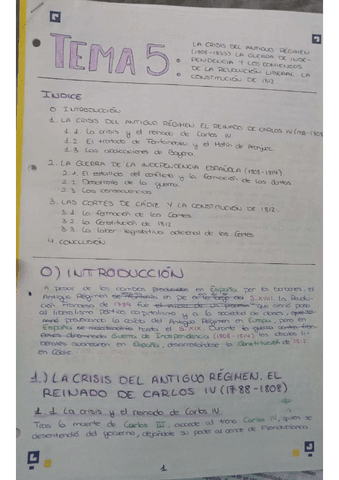 TEMA 5:
LA CRISIS DEL ANTIGUO RÉGIMEN
(1808-1833) LA GUERRA DE INDE-
PENDENCIA Y LOS COMIENZOS
DE LA REVOLUCIÓN LIBERAL. LA
CONSTITUCIÓN DE 1812
ÍNDICE
0. INTRODUCCIÓN
1. LA CRISIS DEL ANTIGUO RÉGIMEN. EL REINADO DE CARLOS IV (1788-1808)
1.1. La crisis y el reinado de Carlos IV
1.2. El tratado de Fontainebleau y el Motín de Aranjuez
1.3. Las abdicaciones de Bayona
2. LA GUERRA DE LA INDEPENDENCIA ESPAÑOLA (1808-1814)
2.1. El estallido del conflicto y la formación de las Juntas
2.2. Desarrollo de la guerra
2.3. Las consecuencias
3. LAS CORTES DE CÁDIZ Y LA CONSTITUCIÓN DE 1812
3.1. La formación de las Cortes
3.2. La Constitución de 1812
3.3. La labor legislativa adicional de las Cortes
4. CONCLUSIÓN
0) INTRODUCCIÓN
A pesar de los cambios producidos en España por los borbones, el
Antiguo Régimen en pie S. XVIII. La Revolu-
ción Francesa de 1789 fue que sirvió para
al liberalismo político y la sociedad de clases,
provocando la caída del Antiguo Régimen en Europa, pero en
España hasta el S. XIX. Durante la
Guerra de Independencia (1808-1814), las ideas li-
berales avanzaron en España, desarrollándose la Constitución de 1812
en Cádiz.
1.) LA CRISIS DEL ANTIGUO RÉGIMEN. EL
REINADO DE CARLOS IV (1788-1808)
1.1. La crisis y el reinado de Carlos IV.
Tras la muerte de Carlos III, accede al trono Carlos IV, quien se
desentendió del gobierno, dejándole su poder al conde de Floridablanca.
1